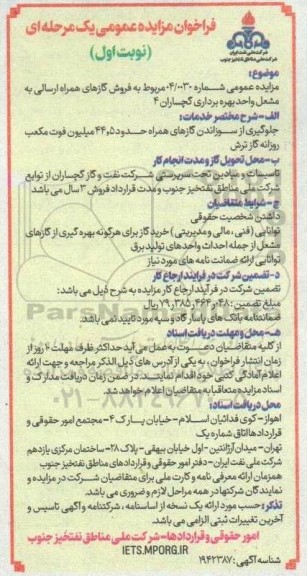 فراخوان مزایده عمومی یک مرحله ای
(نوبت اول)
شرکت ملی نفت ایران
شرکت ملی مناطق نفتخیز جنوب
موضوع:
مزایده عمومی شماره ۰۴/۰۰۳۰ مربوط به فروش گازهای همراه ارسالی به
مشعل واحد بهره برداری گچساران ۴
الف- شرح مختصر خدمات:
جلوگیری از سوزاندن گازهای همراه حدود ۴۴,۵ میلیون فوت مکعب
روزانه گاز ترش
ب- محل تحویل گاز و مدت انجام کار
تاسیسات و میادین تحت سرپرستی شرکت نفت و گاز گچساران از توابع
شرکت ملی مناطق نفتخیز جنوب و مدت قرارداد فروش ۳ سال می باشد
ج- شرایط متقاضیان
داشتن شخصیت حقوقی
توانایی (فنی، مالی و مدیریتی) خرید گاز برای هرگونه بهره گیری از گازهای
مشعل از جمله احداث واحدهای تولید برق
توانایی ارائه ضمانت نامه های مورد نیاز
د- تضمین شرکت در فرایند ارجاع کار
تضمین شرکت در فرآیند ارجاع کار مزایده به شرح ذیل می باشد:
مبلغ تضمین: ۷۹,۳۸۵,۴۶۴,۰۴۸ ریال
ضمانتنامه بانک های پاسارگاد و سپه مورد تایید نمی باشد
هـ- محل و مهلت دریافت اسناد
از کلیه متقاضیان دعوت به عمل می آید حداکثر ظرف مهلت ۱۰ روز از
زمان انتشار فراخوان، به یکی از آدرس های ذیل الذکر مراجعه و جهت ارائه
اعلام آمادگی کتبی خود اقدام نمایند. در ضمن زمان دریافت مدارک و
اسناد مزایده متعاقبا به متقاضیان اعلام خواهد شد.
محل دریافت اسناد:
اهواز- کوی فدائیان اسلام- خیابان پارک ۴- مجتمع امور حقوقی و
قراردادها اتاق شماره یک
تهران- میدان آرژانتین- اول خیابان بیهقی- پلاک ۲۸- ساختمان مرکزی یازدهم
شرکت ملی نفت ایران- دفتر امور حقوقی و قراردادهای مناطق نفتخیز جنوب
همزمان ارائه معرفی نامه و کارت ملی برای متقاضیان شرکت در مزایده و
نمایندگان شرکتها در همه مراحل لازم و ضروری می باشد.
تذکر: حسب مورد ارائه یک نسخه از اساسنامه، شرکتنامه و آگهی تاسیس و
آخرین تغییرات ثبتی الزامی می باشد.
امور حقوقی و قراردادها- شرکت ملی مناطق نفتخیز جنوب
IETS.MPORG.IR
شناسه آگهی: ۱۹۴۲۳۸۷